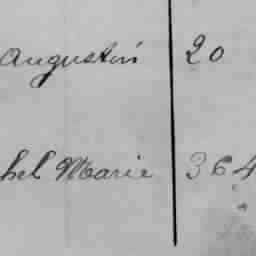 Augustin 20
hel Marie 364